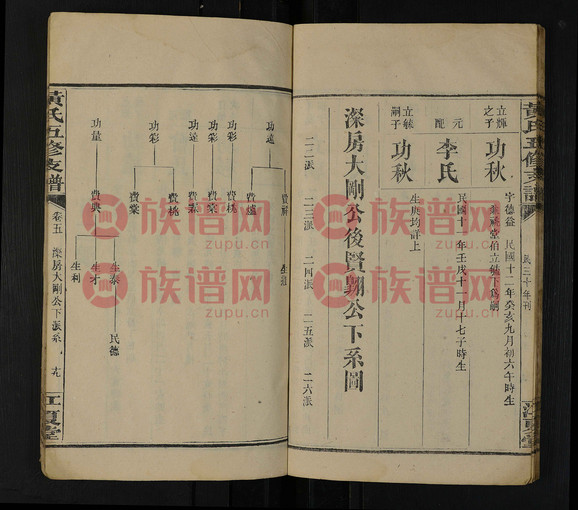 黃氏五修支譜
民三十年刊
江夏堂
立輝之子
功秋
字德益 民國十二年癸亥九月初六午時生
堂伯立毓下爲嗣
元配
李氏
民國十一年壬戌十一月十七子時生
立毓嗣子
功秋
生庚均詳上
深房大剛公後賢翺公下系圖
二二派 二三派 二四派 二五派 二六派
功遠
費
費遠
生
功彩
費桃
功彩
費棠
功遠
費
功彩
費桃
費棠
功量
費典
生泰
民德
生才
生利
黃氏五修支譜
卷五
深房大剛公下派系
江夏堂
族谱网
zupu.cn
族谱网
zupu.cn
族谱网
zupu.cn
族谱网
zupu.cn